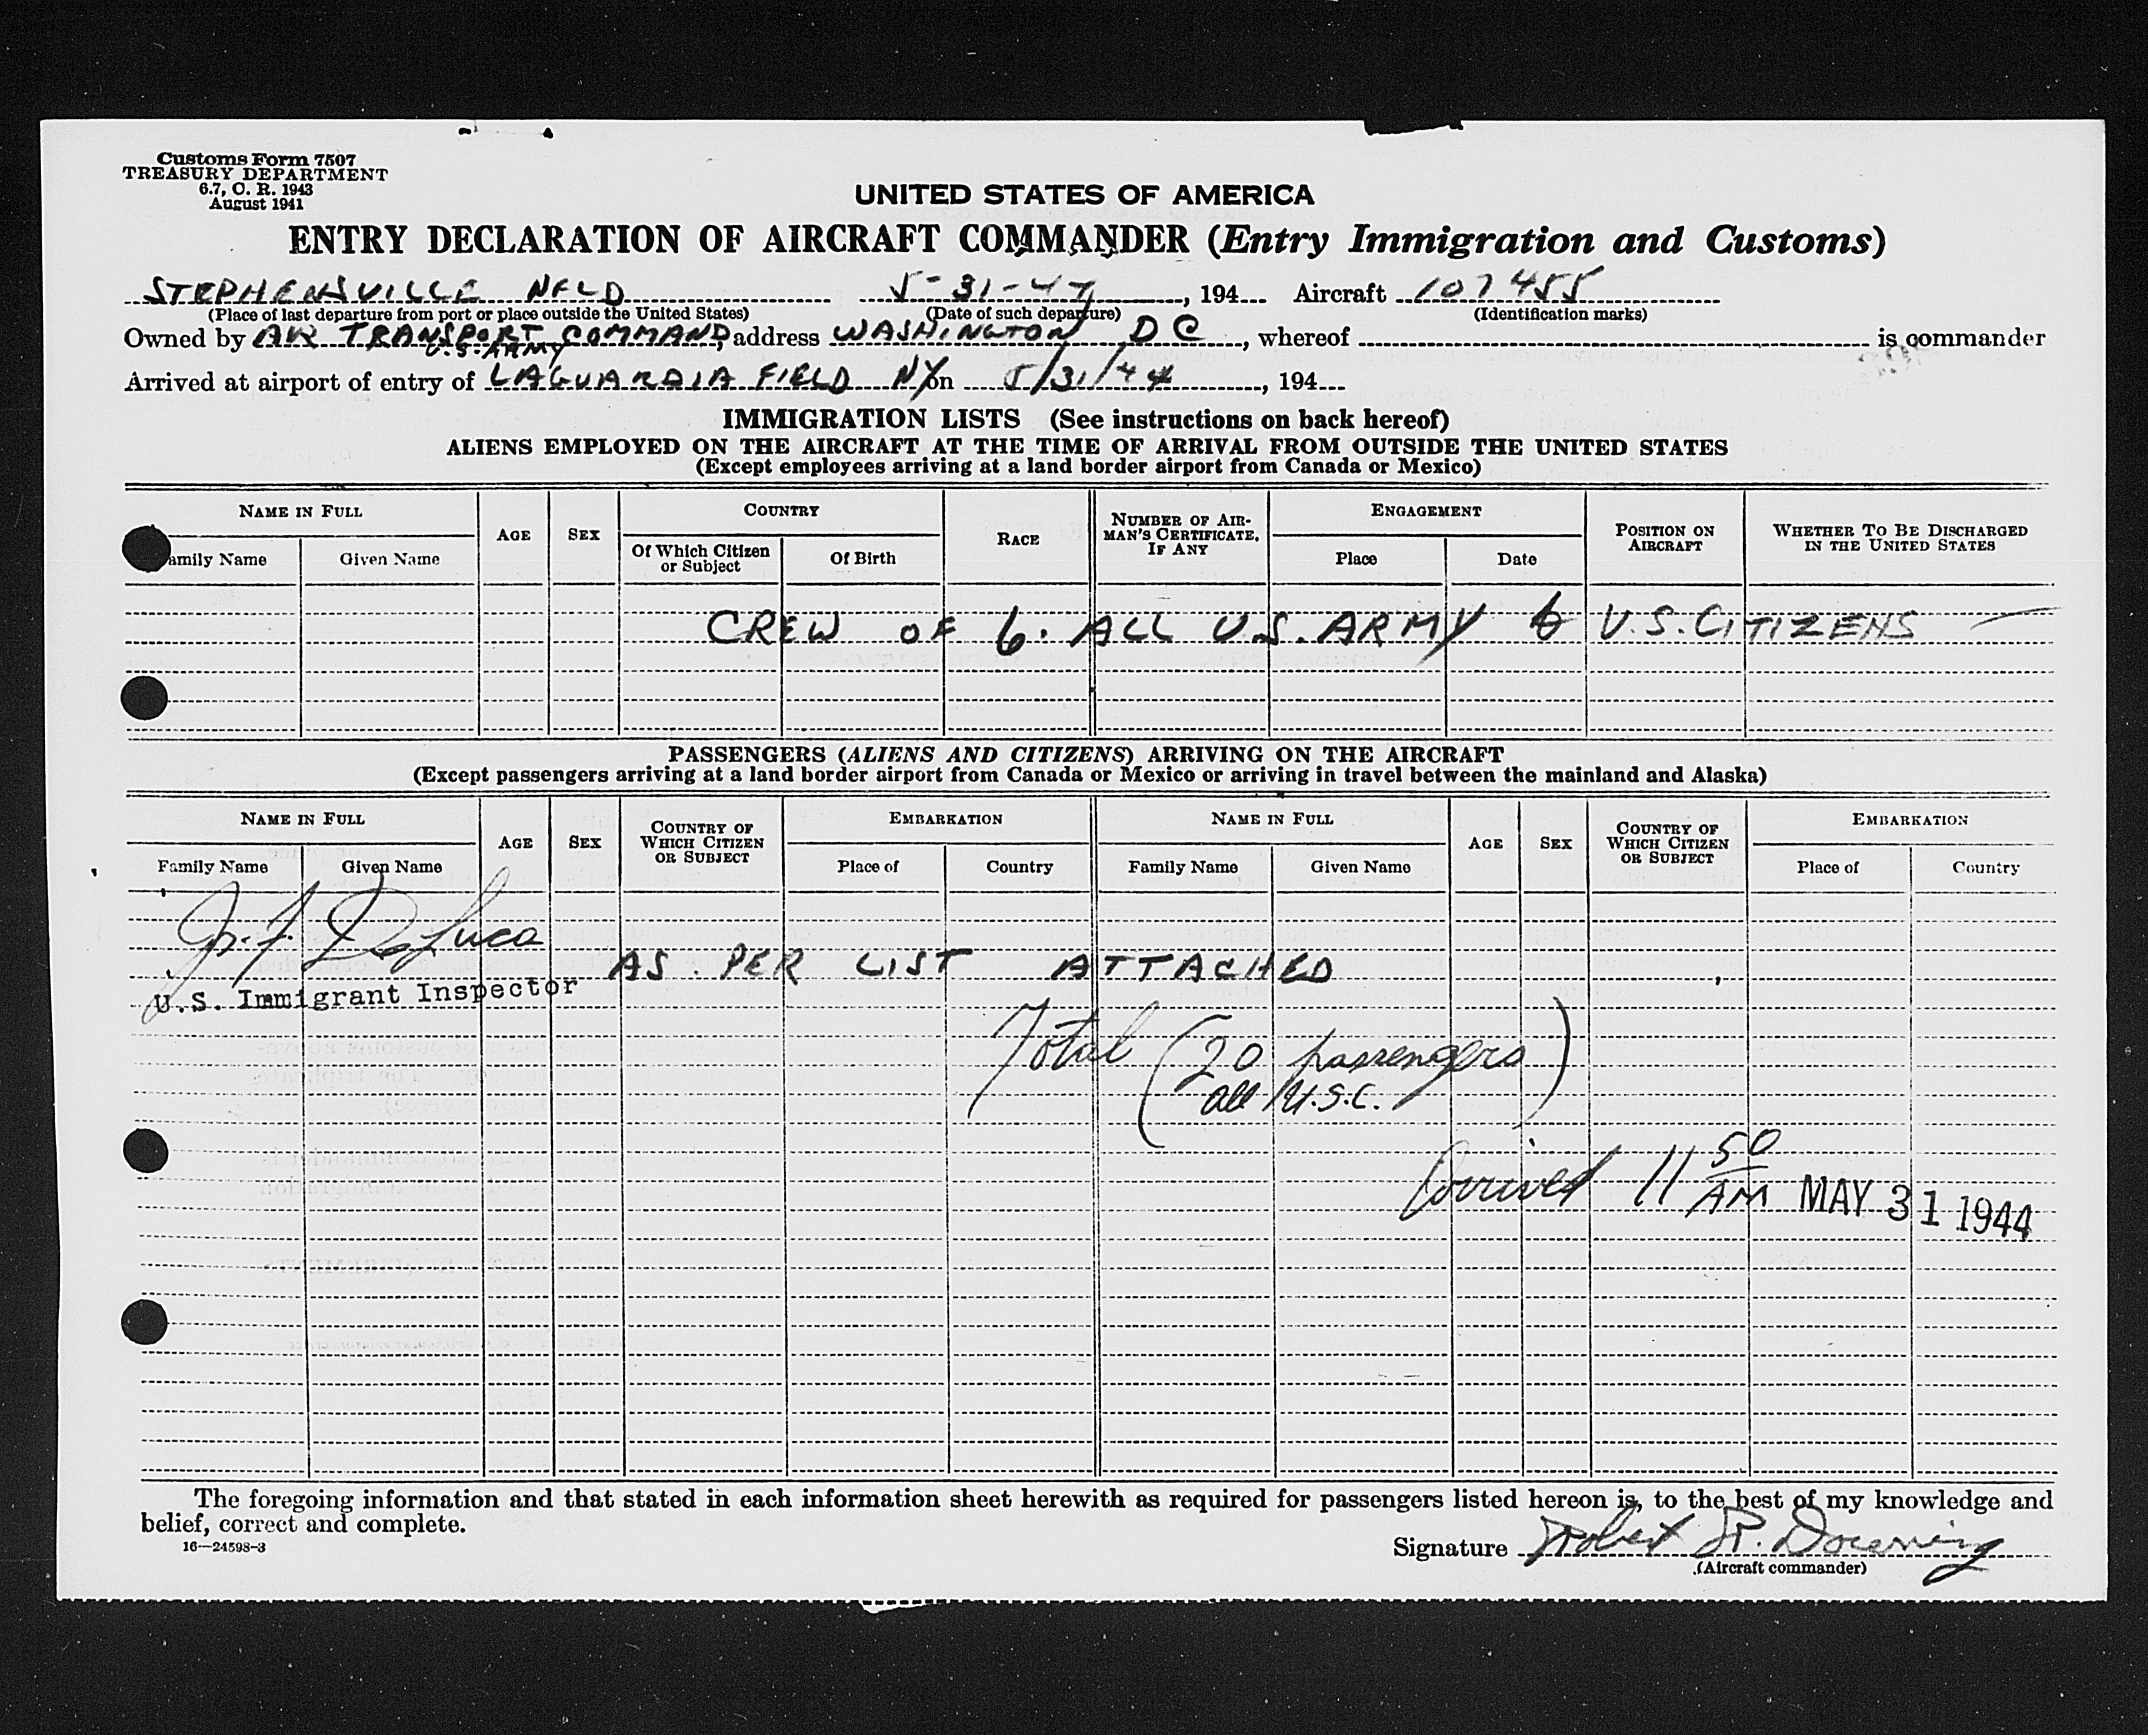 Customs Form 7507
TREASURY DEPARTMENT
6.7, C. R. 1943
August 1941
UNITED STATES OF AMERICA
ENTRY DECLARATION OF AIRCRAFT COMMANDER (Entry Immigration and Customs)
STEPHENSVILLE NFLD 5-31-44, 194 Aircraft 107455
(Place of last departure from port or place outside the United States) (Date of such departure) (Identification marks)
Owned by AIR TRANSPORT COMMAND, address WASHINGTON D C, whereof is commander
U.S. ARMY
Arrived at airport of entry of LAGUARDIA FIELD NY on 5/31/44, 194
IMMIGRATION LISTS (See instructions on back hereof)
ALIENS EMPLOYED ON THE AIRCRAFT AT THE TIME OF ARRIVAL FROM OUTSIDE THE UNITED STATES
(Except employees arriving at a land border airport from Canada or Mexico)
NAME IN FULL AGE SEX COUNTRY RACE NUMBER OF AIRMAN'S CERTIFICATE, IF ANY ENGAGEMENT POSITION ON AIRCRAFT WHETHER TO BE DISCHARGED IN THE UNITED STATES
Family Name Given Name Of Which Citizen or Subject Of Birth Place Date
CREW OF 6. ALL U.S. ARMY & U.S. CITIZENS
PASSENGERS (ALIENS AND CITIZENS) ARRIVING ON THE AIRCRAFT
(Except passengers arriving at a land border airport from Canada or Mexico or arriving in travel between the mainland and Alaska)
NAME IN FULL AGE SEX COUNTRY OF WHICH CITIZEN OR SUBJECT EMBARKATION NAME IN FULL AGE SEX COUNTRY OF WHICH CITIZEN OR SUBJECT EMBARKATION
Family Name Given Name Place of Country Family Name Given Name Place of Country
De Luca
AS PER LIST ATTACHED
U.S. Immigrant Inspector
Total (20 passengers)
all U.S.C.
Arrived 11 50 AM MAY 31 1944
The foregoing information and that stated in each information sheet herewith as required for passengers listed hereon is, to the best of my knowledge and
belief, correct and complete.
16—24598-3
Signature Robert R. Downing
(Aircraft commander)